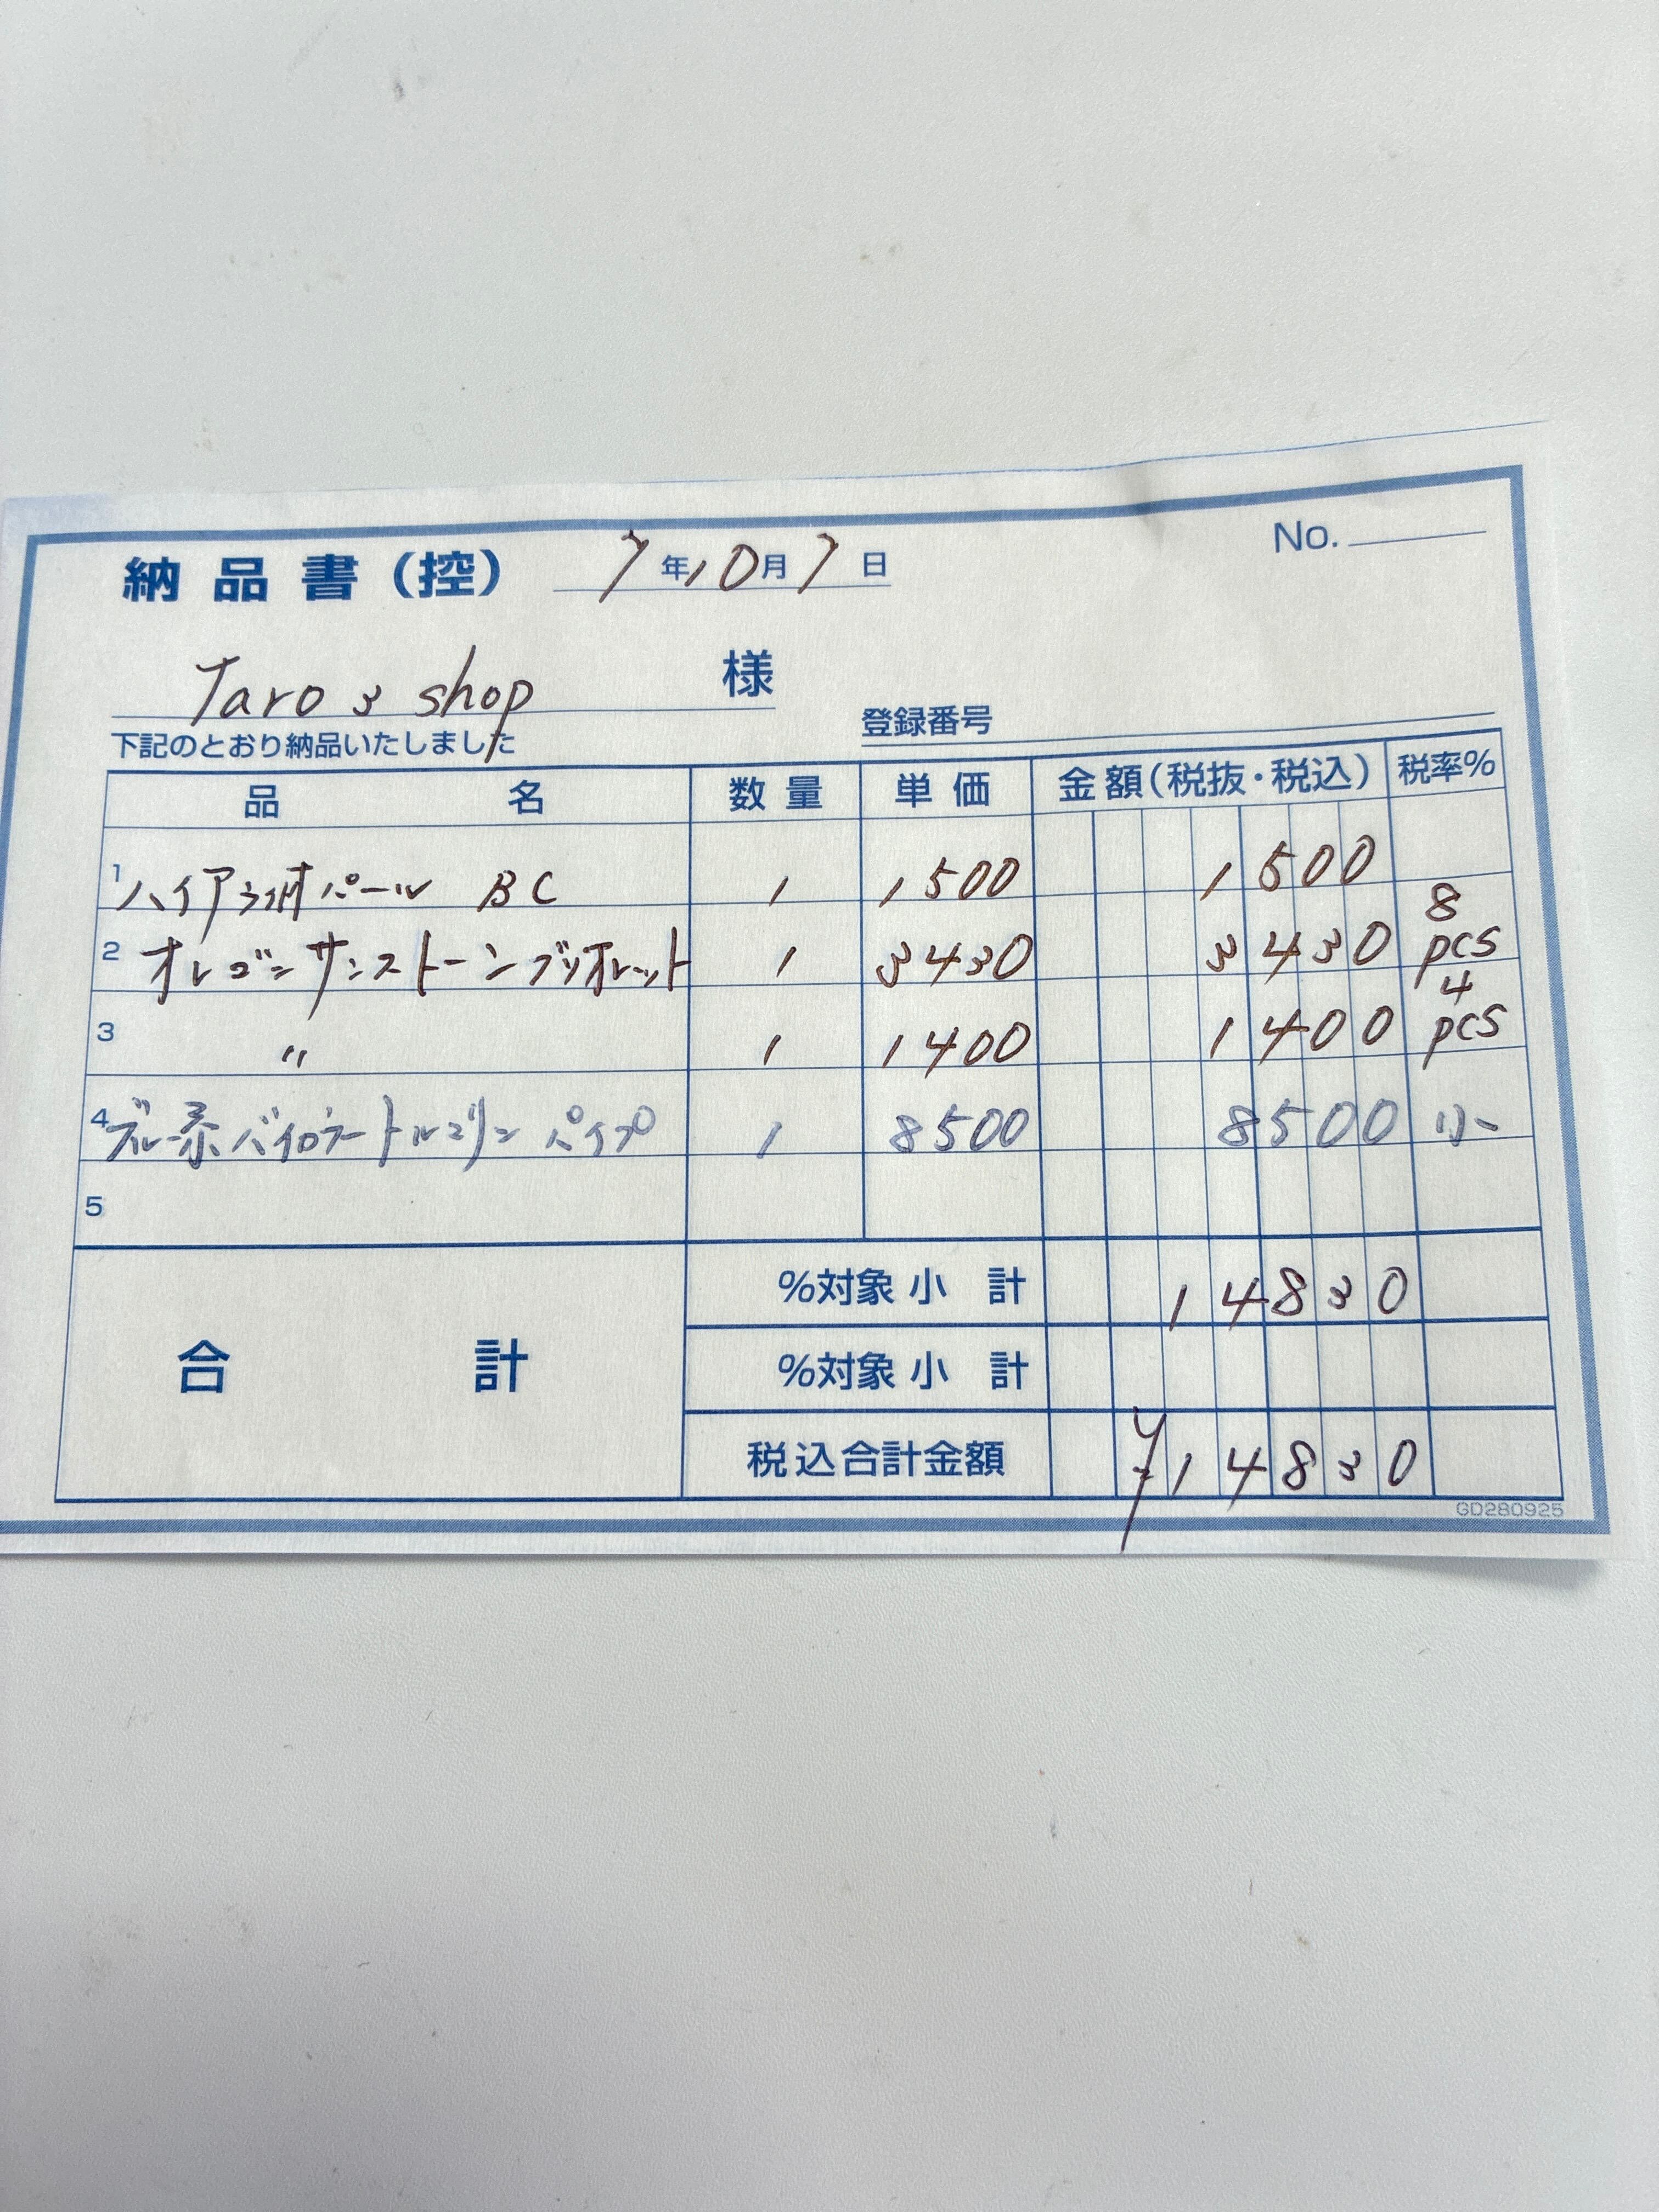 納品書(控) 7年10月7日 No.
Taro's shop 様
下記のとおり納品いたしました 登録番号
品名 数量 単価 金額(税抜・税込) 税率%
1 パール BC 1 1500 1500
2 オレゴンサンストーンブリオレット 1 3430 3430 8 pcs
3 〃 1 1400 1400 4 pcs
4 ブルー系バイカラートルマリン パイプ 1 8500 8500 小
5
%対象 小計 14830
合計 %対象 小計
税込合計金額 ¥14830
GD280925